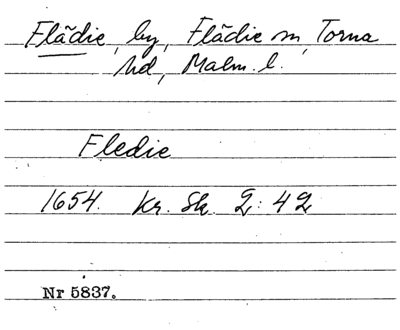 Flädie, by, Flädie sn, Torna
hd, Malm. l.
Fledie
1654. Kr. Sk. 2:42
Nr 5837.